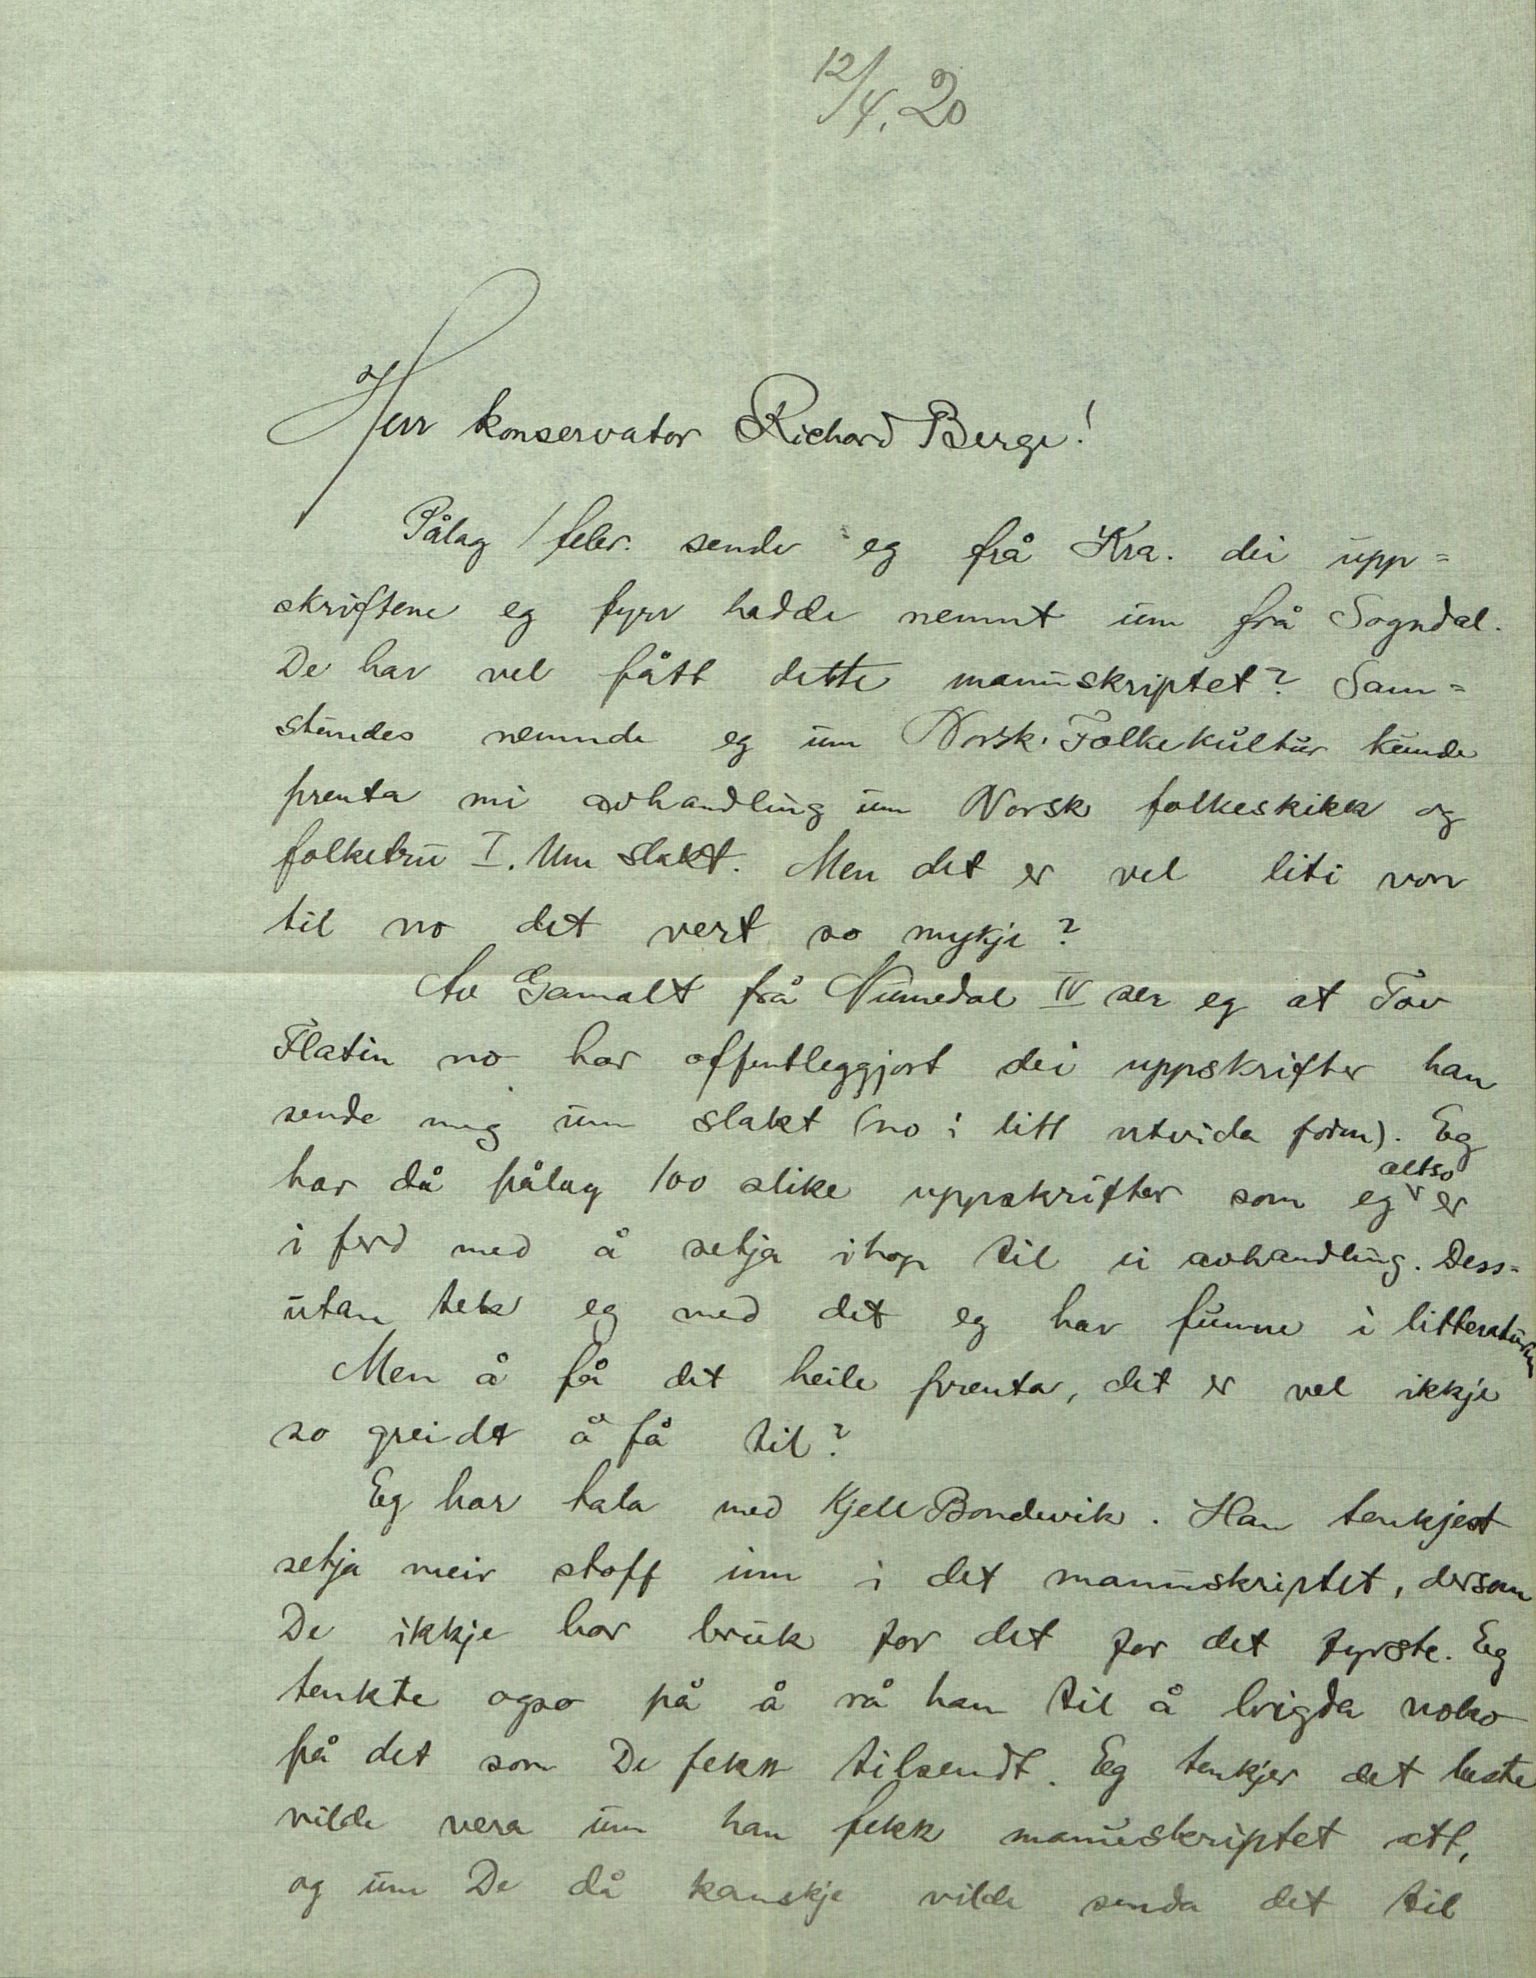 12/4. 20
Herr konservator Richard Berge!
Pålag 1 febr. sende eg frå Kra. dei upp=
skriftene eg fyrr hadde nemnt um frå Sogndal.
De har vel fått dette manuskriptet? Sam=
stundes nemnde eg um Norsk Folkekultur kunde
prenta mi avhandling um Norsk folkeskikk og
folketru I. Um slakt. Men det er vel liti von
til no det vert so mykje?
Av Gamalt frå Numedal IV ser eg at Tov
Flatin no har offentleggjort dei uppskrifter han
sende meg um slakt (no i litt utvida form). Eg
har då pålag 100 slike uppskrifter som eg altso er
i ferd med å setja ihop til ei avhandling. Dess=
utan tek eg med det eg har funne i litteraturen
Men å få det heile prenta, det er vel ikkje
so greidt å få til?
Eg har tala med Kjell Bondevik. Han tenkjest
setja meir stoff inn i det manuskriptet, dersom
De ikkje har bruk for det for det fyrste. Eg
tenkte ogso på å rå han til å brigda noko
på det som De fekk tilsendt. Eg tenkjer det beste
vilde vera um han fekk manuskriptet att,
og um De då kanskje vilde senda det til